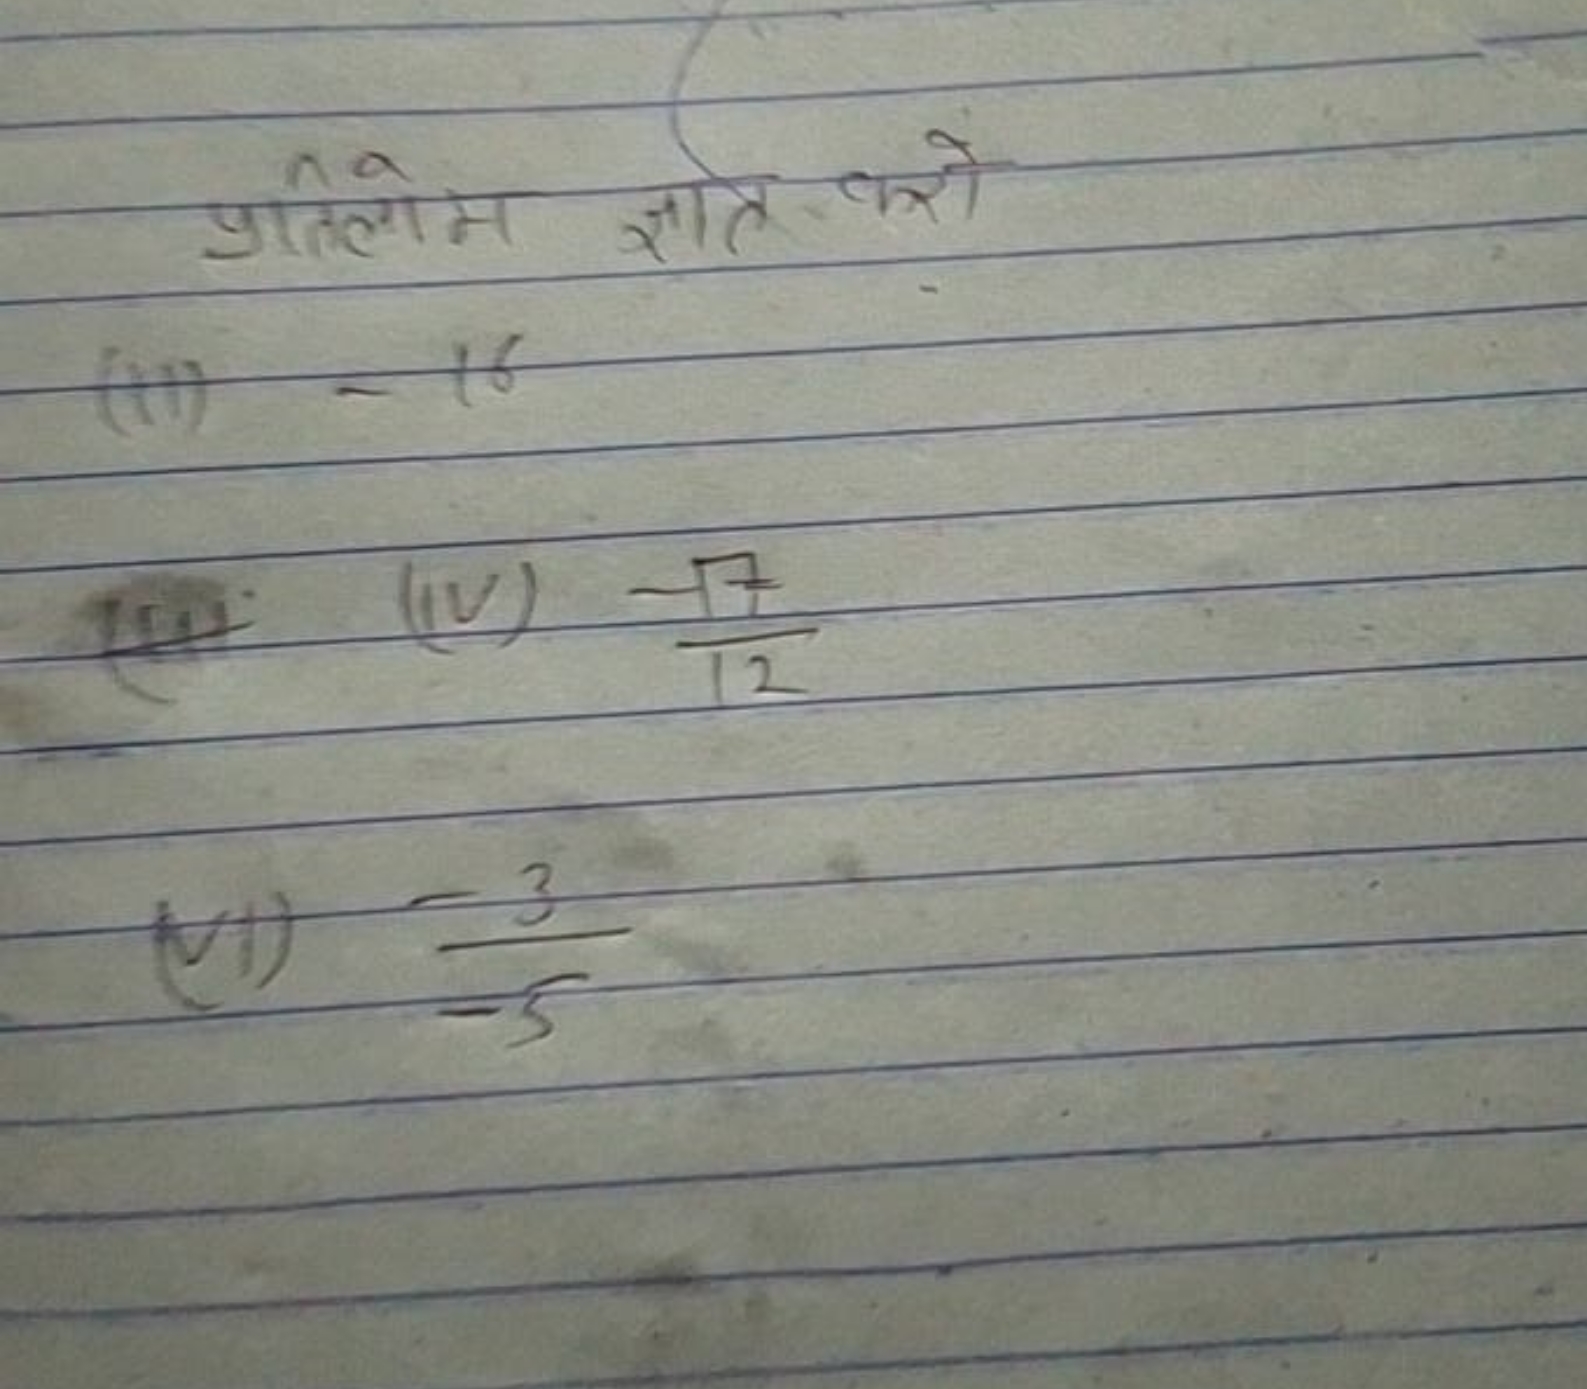 प्रतिलोम ज्ञात करो
(iii) - 16
(iv) -17/12
(vi) -3/-5